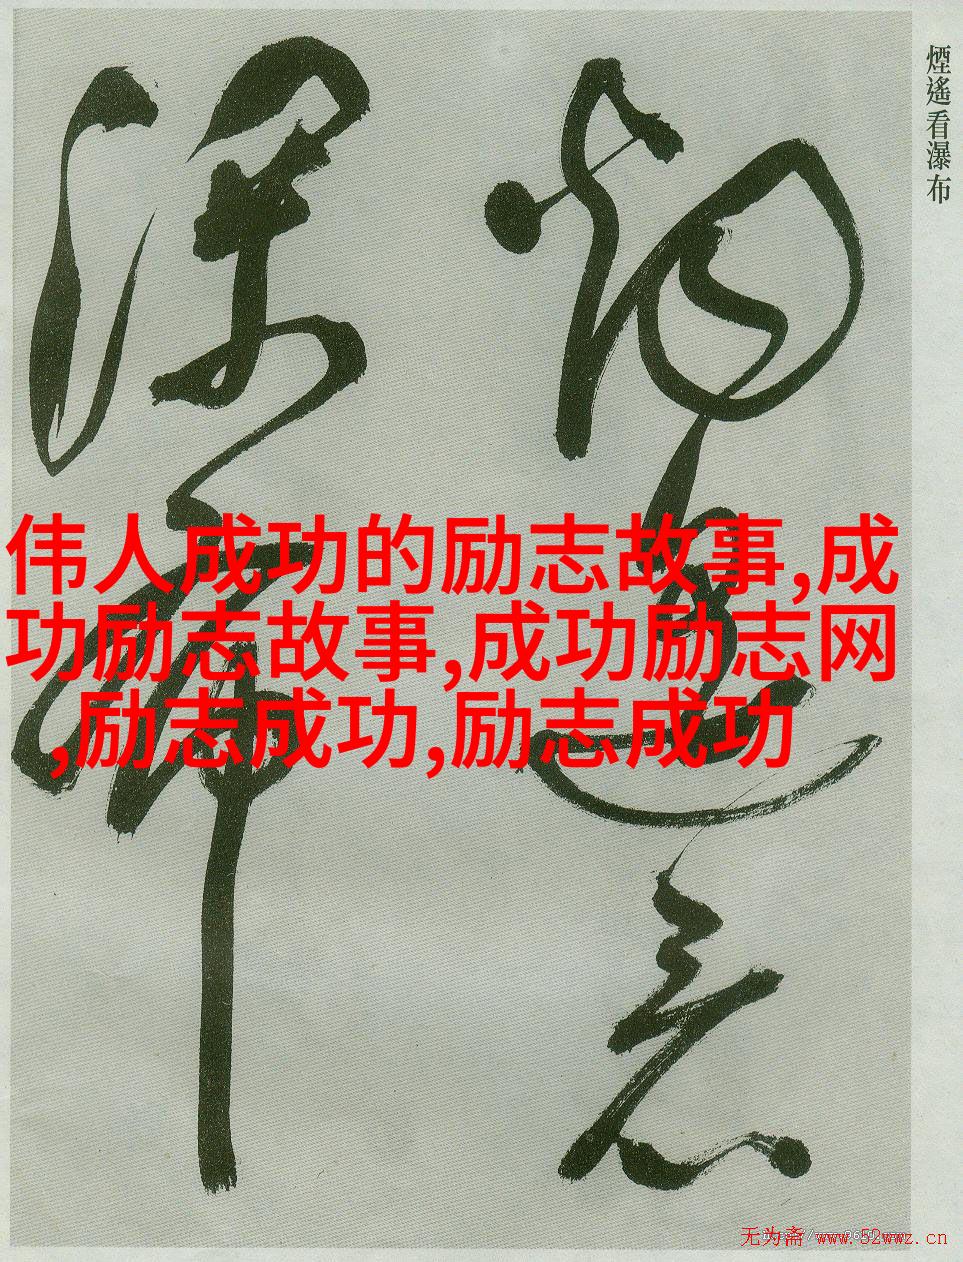 煙遙看瀑布
煙遙看
瀑布
伟人成功的励志故事,成
功励志故事,成功励志网
,励志成功,励志成功
无为斋 www.52wwz.cn